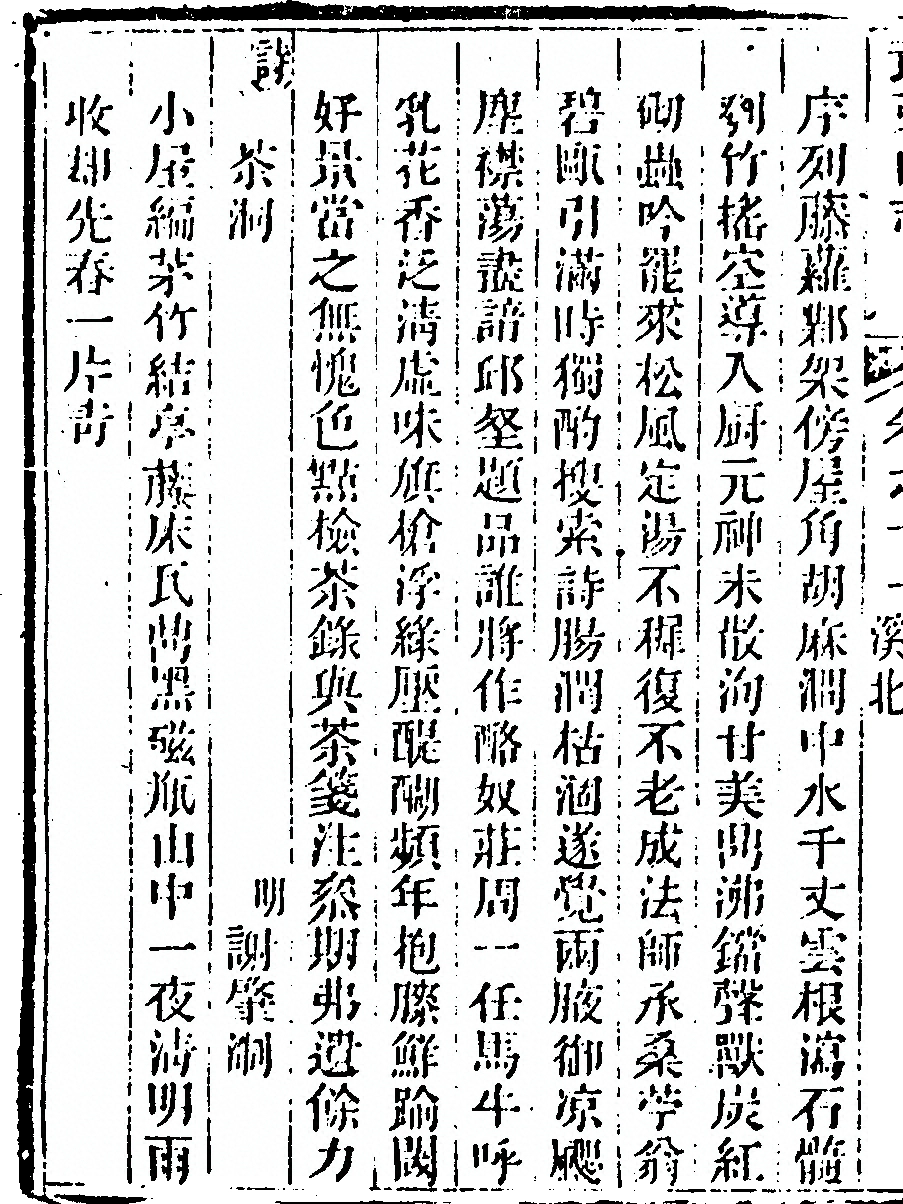 溪北
序列藤蘿鄴架傍屋角胡麻澗中水千丈雲根瀉石髓
刳竹搖空導入厨元神未散洵甘美鬲沸鐺聲獸炭紅
砌蟲吟罷來松風定湯不穉復不老成法師承桑苧翁
碧甌引滿時獨酌搜索詩腸潤枯涸遂覺兩腋御凉飔
塵襟蕩盡諳邱壑題品誰將作酪奴莊周一任馬牛呼
乳花香泛淸虛味旗槍浮綠壓醍醐頻年抱膝鮮踰閾
好景當之無愧色點檢茶錄與茶箋注叅期弗遺餘力
茶洞
明謝肇淛
小屋編茅竹結亭藤床瓦鬲黑磁甁山中一夜淸明雨
收却先春一片靑